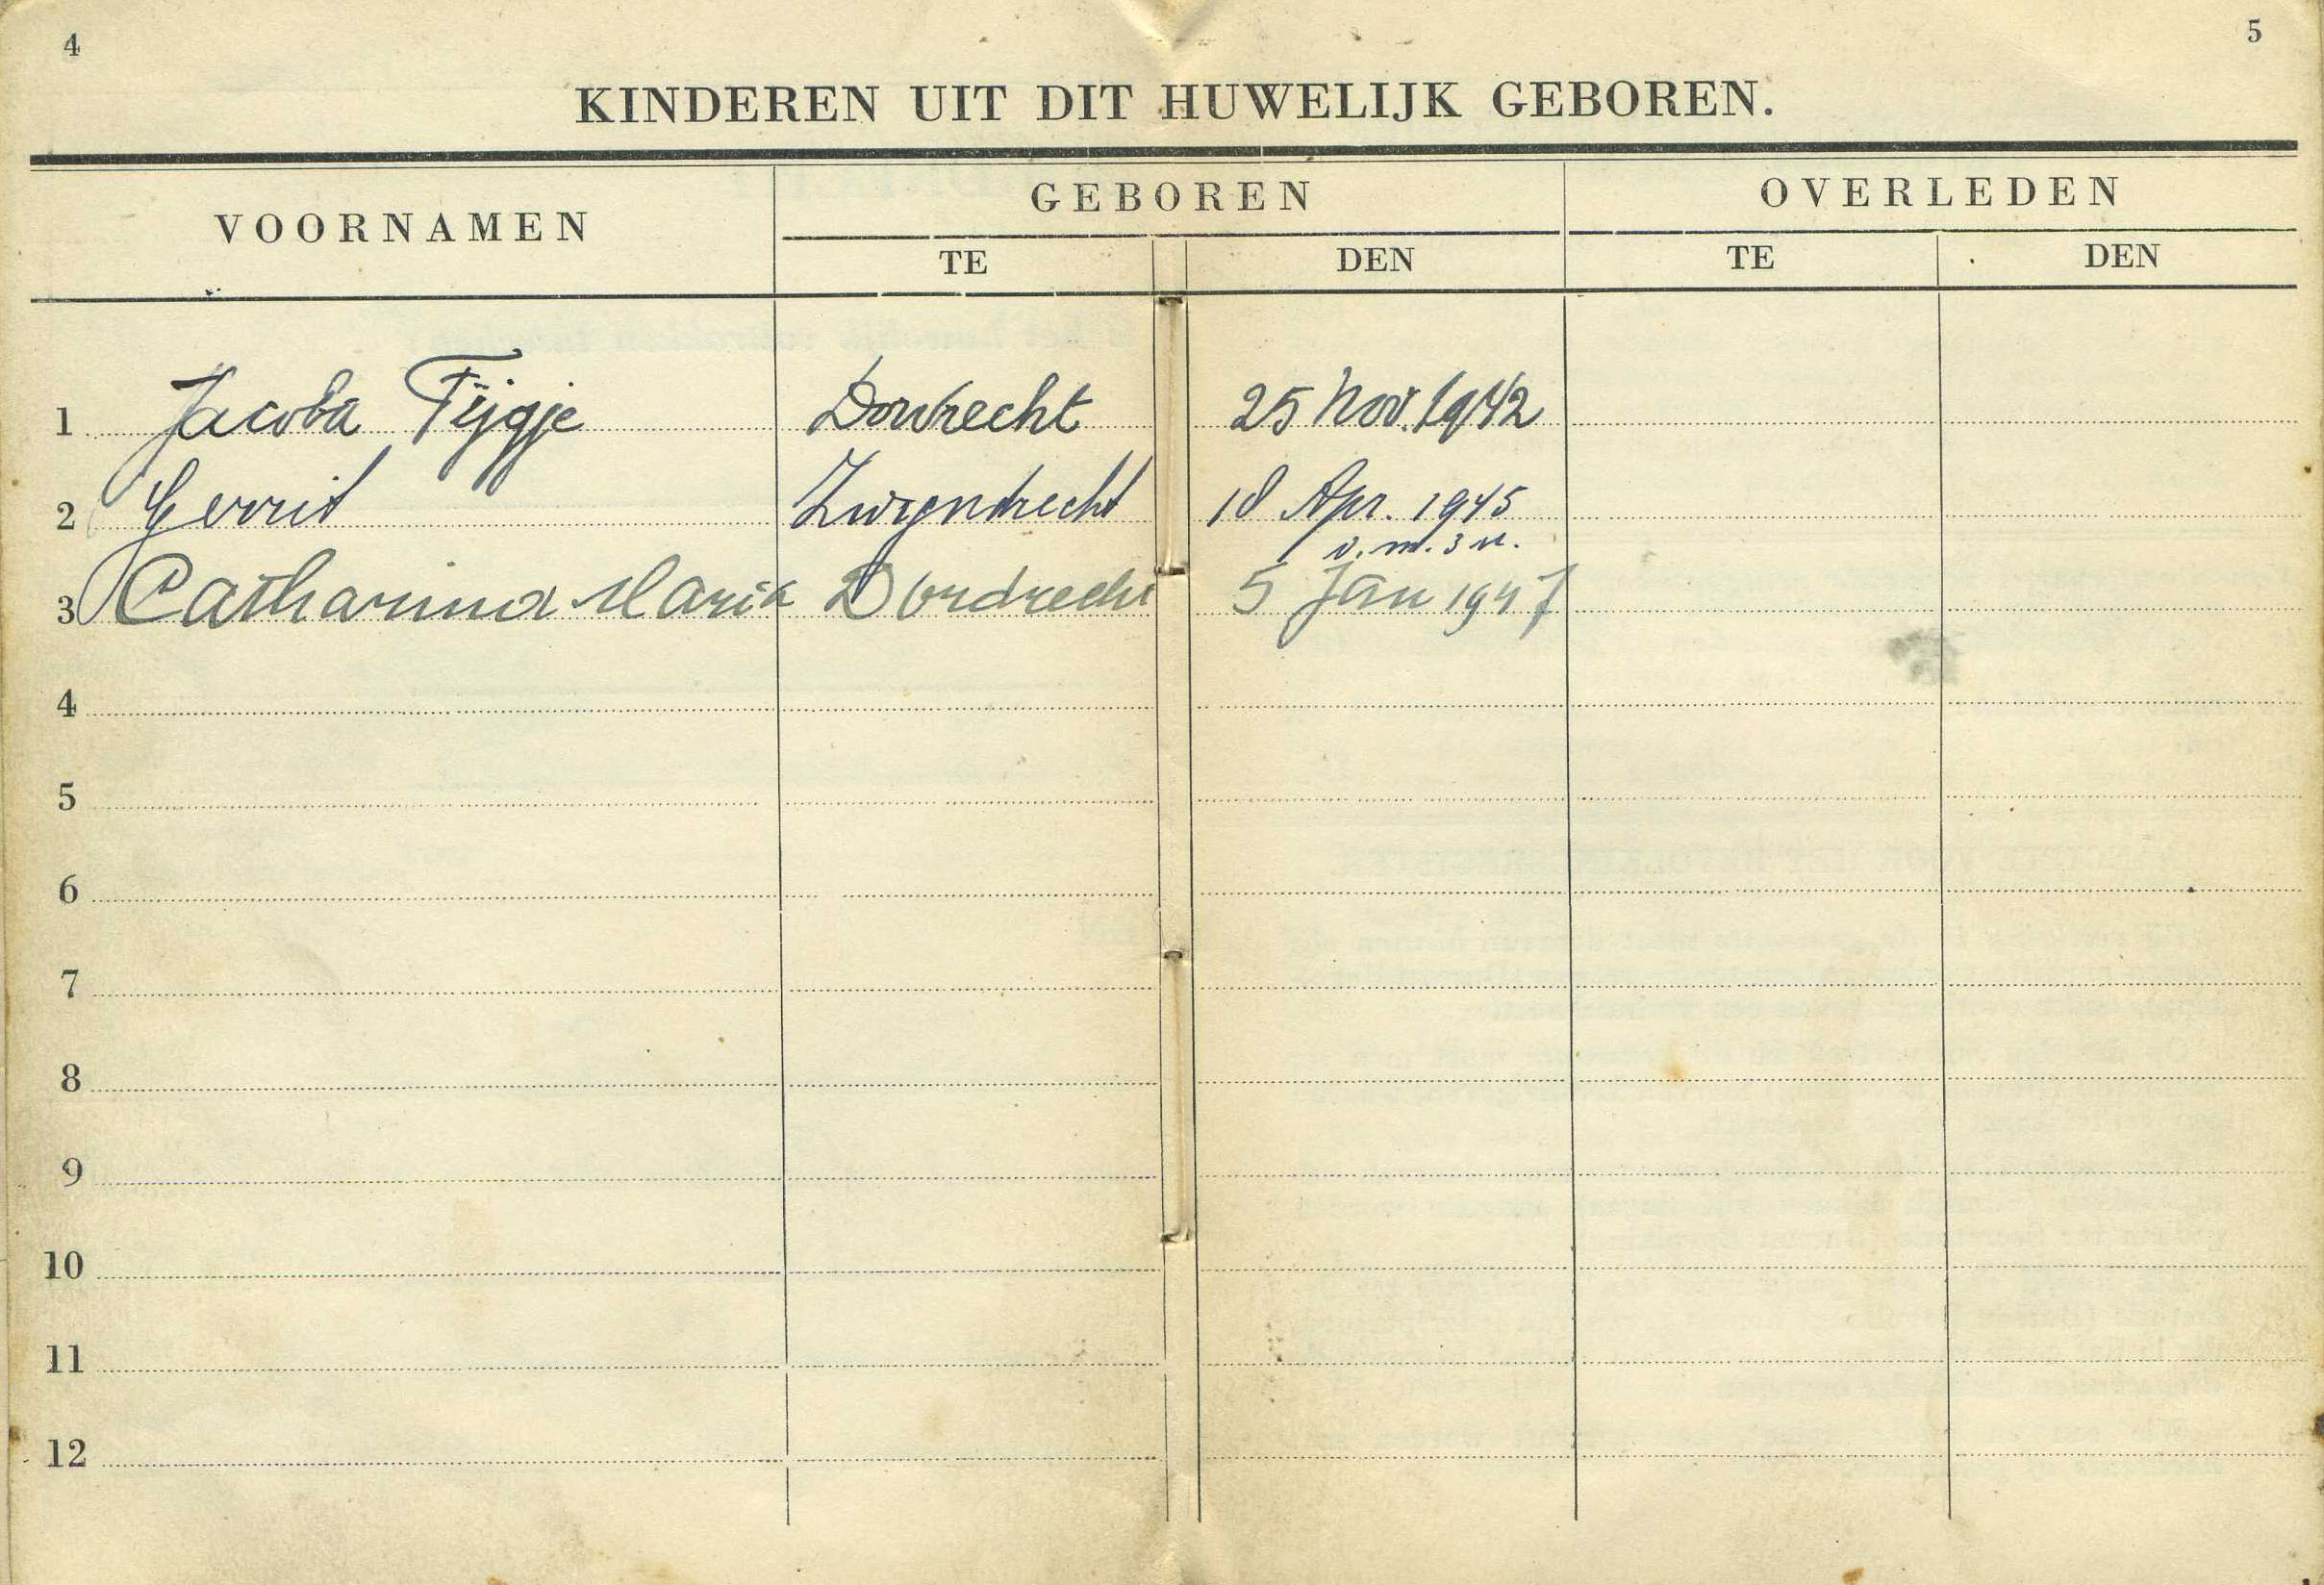 4 5
KINDEREN UIT DIT HUWELIJK GEBOREN.
VOORNAMEN GEBOREN OVERLEDEN
TE DEN TE DEN
1 Jacoba Tijgje Dordrecht 25 Nov. 1942
2 Gerrit Zwijndrecht 18 Apr. 1945
v.m. 3 u.
3 Catharina Maria Dordrecht 5 Jan 1947
4
5
6
7
8
9
10
11
12